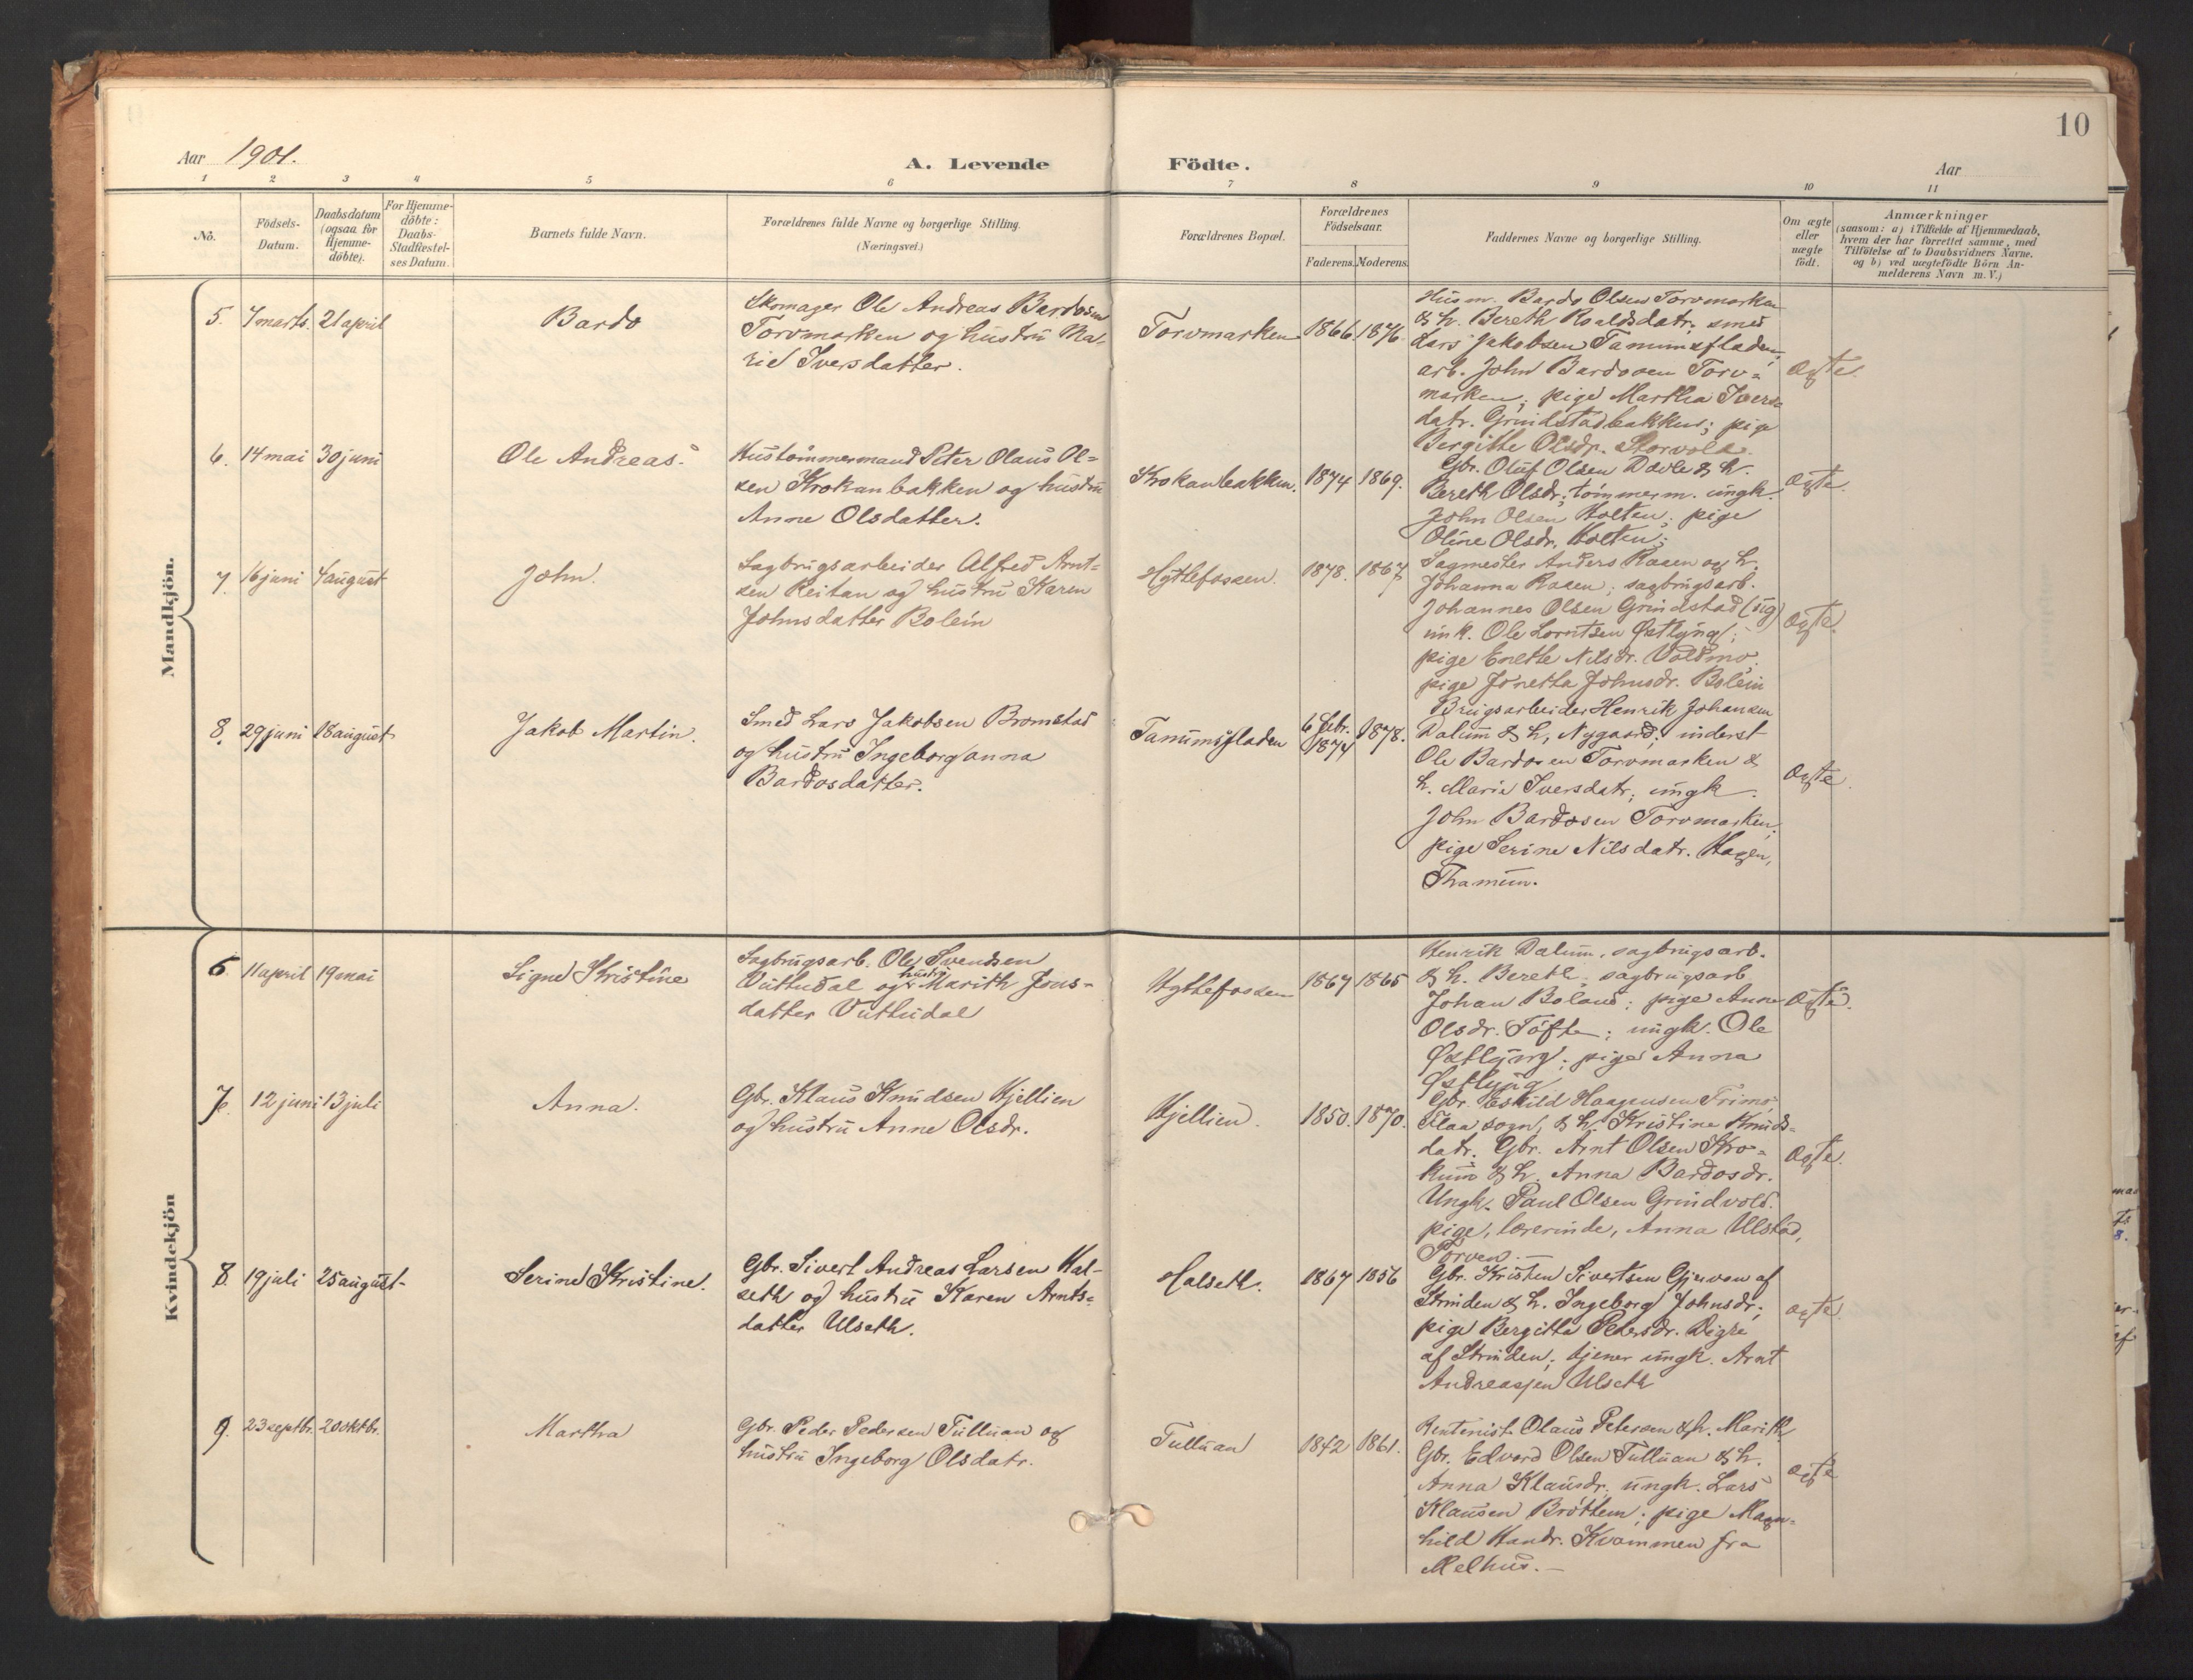 10
Aar 1901.
A. Levende Födte.
Aar
1 2 3 4 5 6 7 8 9 10 11
No.
Födsels-
Datum.
Daabsdatum
(ogsaa for
Hjemme-
döbte).
For Hjemme-
döbte:
Daabs-
Stadfæstel-
ses Datum.
Barnets fulde Navn.
Forældrenes fulde Navne og borgerlige Stilling.
(Næringsvei.)
Forældrenes Bopæl.
Forældrenes
Födselsaar.
Faderens. Moderens.
Faddernes Navne og borgerlige Stilling.
Om ægte
eller
uægte
födt.
Anmærkninger
(saasom: a) i Tilfælde af Hjemmedaab,
hvem der har forrettet samme, med
Tilföielse af to Daabsvidners Navne.
og b) ved uægtefödte Börn An-
melderens Navn m. V.)
Mandkjön.
5. 7 marts. 21 april
Bardo
Skomager Ole Andreas Bardosen
Torvmarken og hustru Ma-
rie Iversdatter.
Torvmarken 1866. 1876.
Husm. Bardo Olsen Torvmarken
& h. Bereth Roaldsdatr; smed
Lars Jakobsen Tanumsfladen,
arb. John Bardosen Torv-
marken; pige Martha Ivers-
datr. Grindstadbakken; pige
Bergitte Olsdr. Storvold.
Ægte.
6. 14 mai 30 juni
Ole Andreas.
Hustömmermand Peter Olaus Ol-
sen Krokanbakken og hustru
Anne Olsdatter.
Krokanbakken. 1874 1869.
Gbr. Oluf Olsen Davle & h.
Bereth Olsdr; tömmerm. ungk.
John Olsen Holten; pige
Oline Olsdr. Holten;
Ægte.
7. 16 juni 4 august
John.
Sagbrugsarbeider Alfred Arnt-
sen Reitan og hustru Karen
Johnsdatter Bolein
Hyttefossen. 1878. 1867
Sagmester Anders Raaen og h.
Johanna Raaen; sagbrugsarb.
Johannes Olsen Grindstad (ug)
unk. Ole Lorntsen Östlyng;
pige Enethe Nilsdr. Voldmo;
pige Jonetta Johnsdr. Bolein
Ægte.
8. 29 juni 18 august
Jakob Martin.
Smed Lars Jakobsen Bromstad
og hustru Ingeborganna
Bardosdatter.
Tanumsfladen 6 Febr. 1874 1878.
Brugsarbeider Henrik Johansen
Dalum & h, Nygaard; inderst
Ole Bardosen Torvmarken &
h. Marie Iversdatr; ungk.
John Bardosen Torvmarken;
pige Serine Nilsdatr. Hagen,
Thamun.
Ægte.
Kvindekjön
6. 11 april 19 mai
Signe Kristine
Sagbrugsarb. Ole Svendsen
Vuttudal og hustru Marith Jons-
datter Vuttudal
Hyttefossen 1867 1865
Henrik Dalum, sagbrugsarb.
& h. Bereth; sagbrugsarb
Johan Boland; pige Anne
Olsdr. Töfte; ungk. Ole
Östlyng; pige Anna
Östlyng
Ægte.
7. 12 juni 13 juli
Anna.
Gbr. Klaus Knudsen Kjellien
og hustru Anne Olsdr.
Kjellien. 1850. 1870.
Gbr. Eskild Haagensen Trimo,
Flaa sogn, & h. Kristine Knuds-
datr. Gbr. Arnt Olsen Kro-
kum & h. Anna Bardosdr.
Ungk. Paul Olsen Grindvold.
pige, lærerinde, Anna Ulstad,
Torven.
Ægte.
8. 19 juli 25 august
Serine Kristine.
Gbr. Sivert Andreas Larsen Hal-
seth og hustru Karen Arnts-
datter Ulseth.
Halseth. 1867 1856
Gbr. Kristen Sivertsen Gjervan af
Strinden & h. Ingeborg Johnsdr;
pige Bergitta Pedersdr. Digre
af Strinden; tjener ungk. Arnt
Andreasjen Ulseth
Ægte.
9. 23 septbr. 20 oktbr.
Martha
Gbr. Peder Pedersen Tulluan og
hustru Ingeborg Olsdatr.
Tulluan 1842 1861.
Rentenist Olaus Petersen & h. Marith,
Gbr. Edvard Olsen Tulluan & h.
Anna Klausdr; ungk. Lars
Klausen Bröttem; pige Magn-
hild Handr. Kvammen fra
Melhus.
Ægte